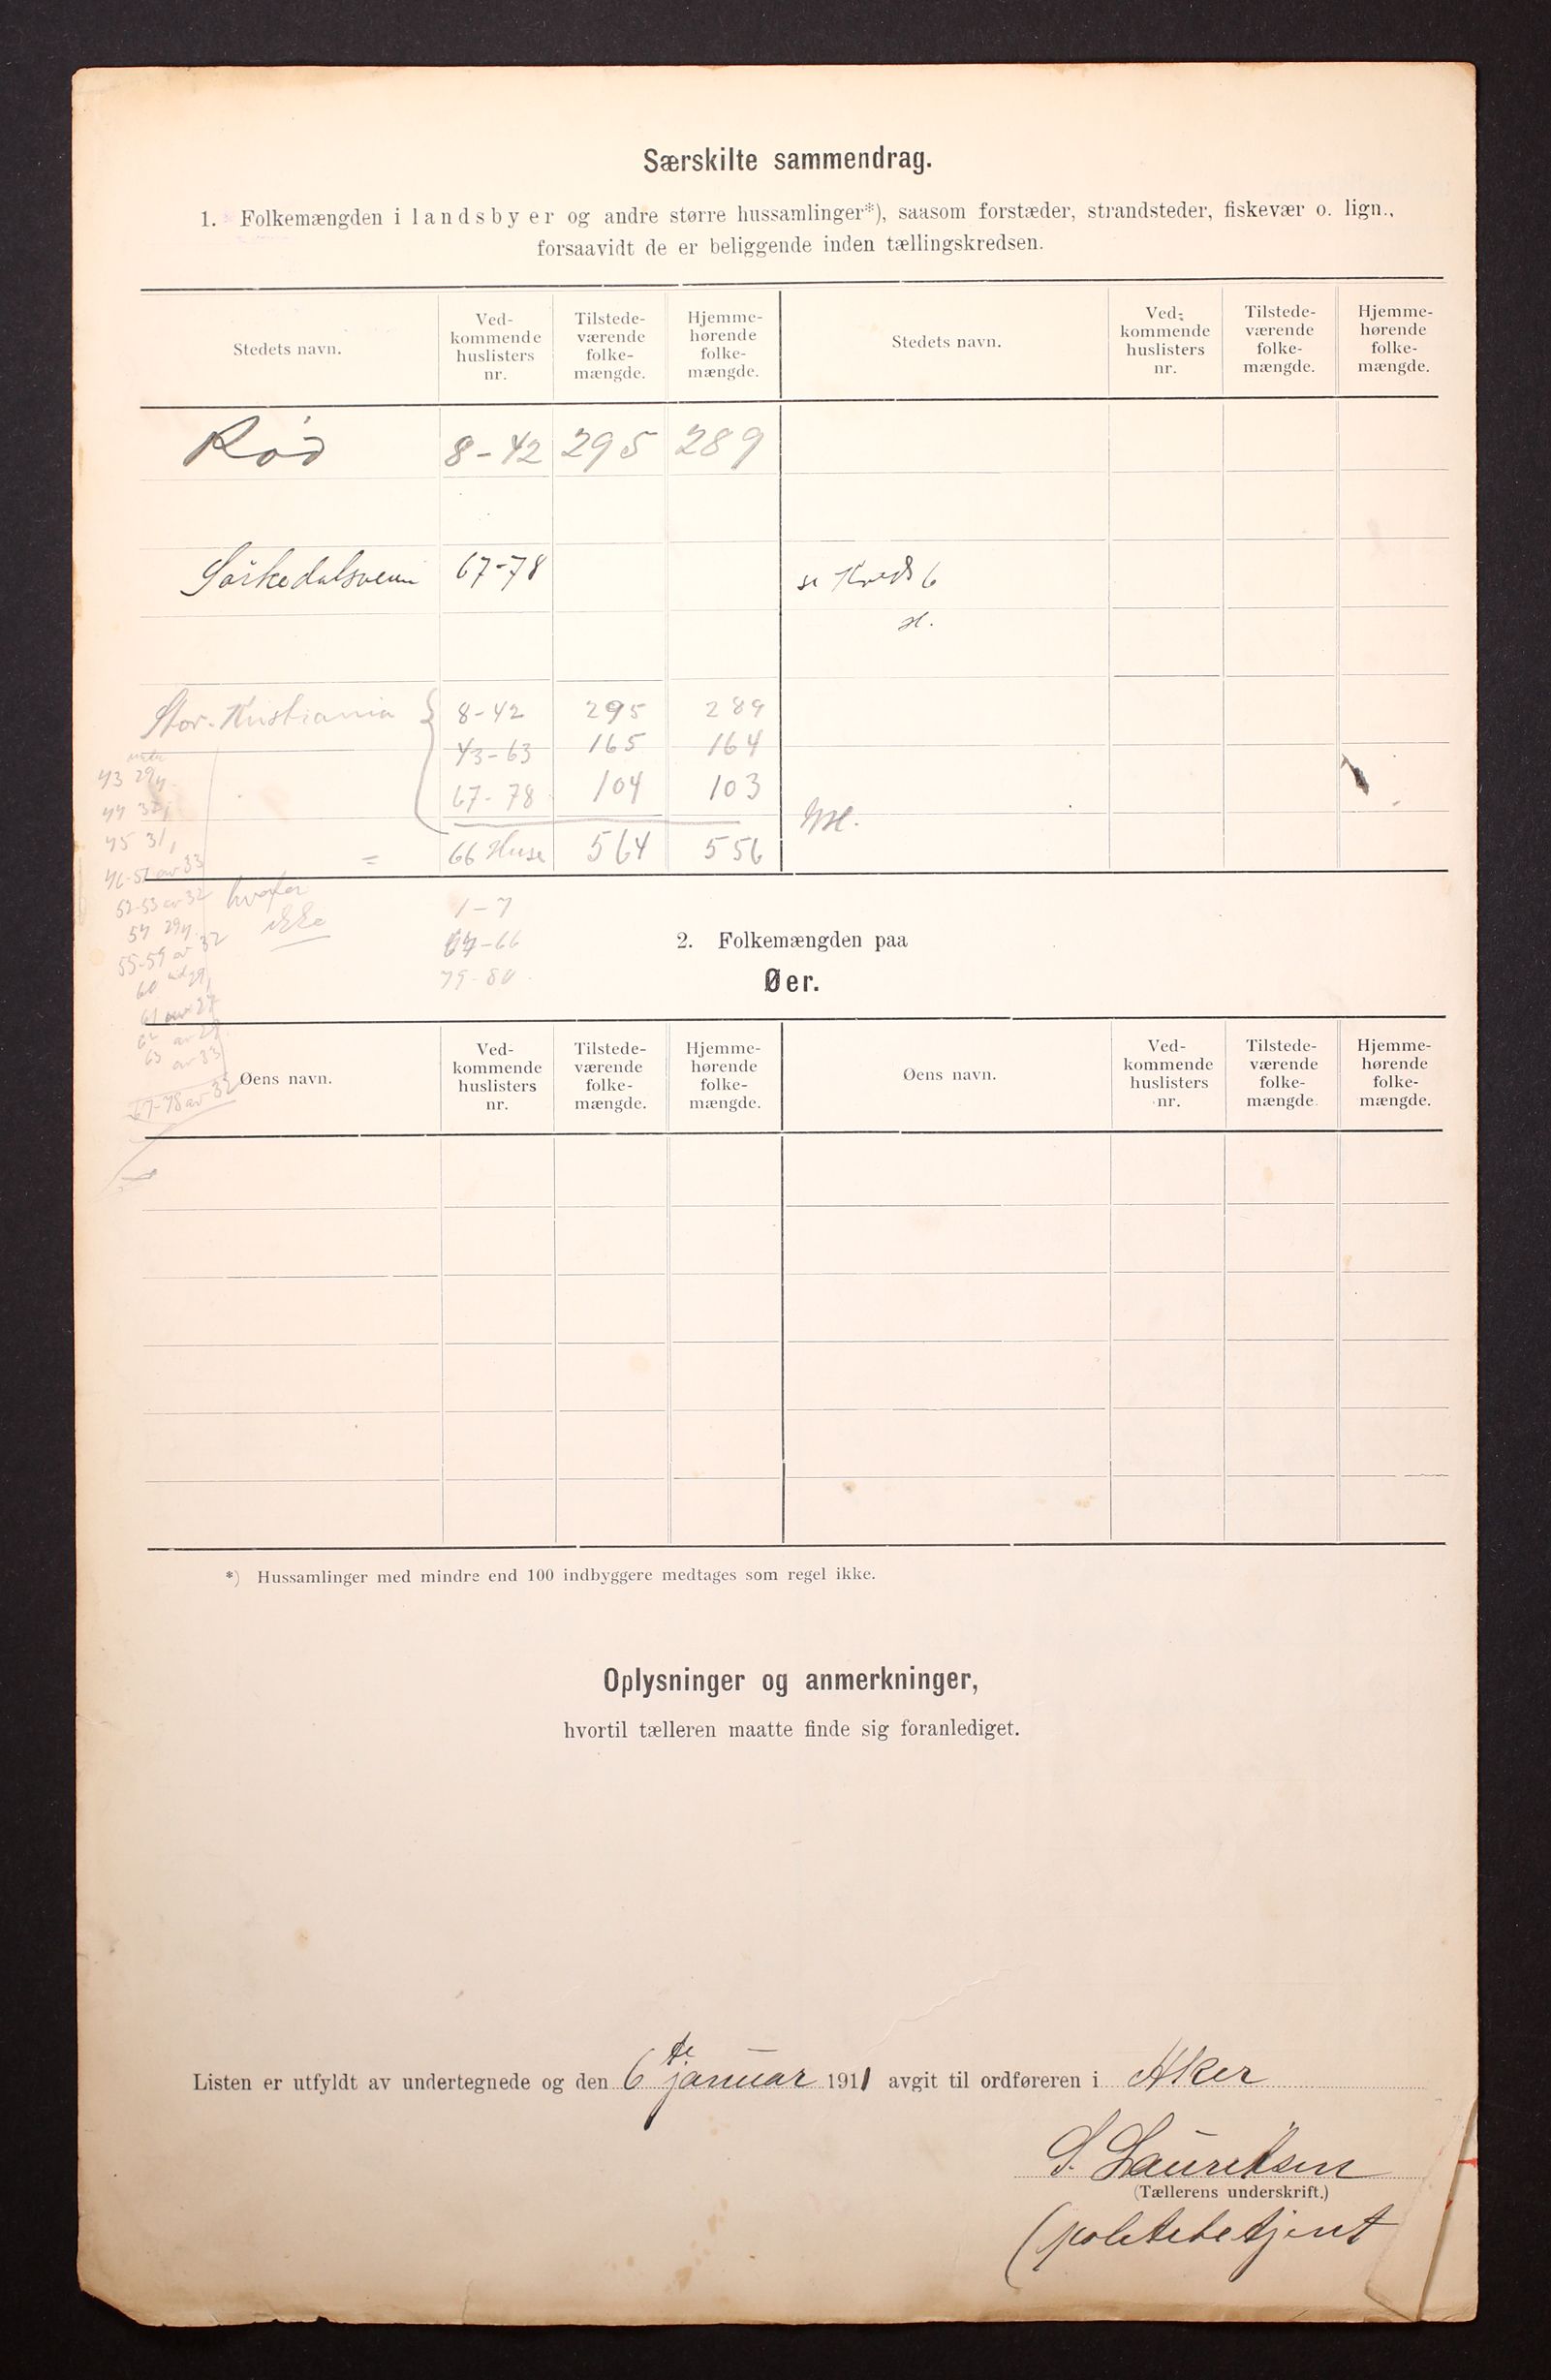 Særskilte sammendrag.
1. Folkemængden i landsbyer og andre større hussamlinger*), saasom forstæder, strandsteder, fiskevær o. lign.,
forsaavidt de er beliggende inden tællingskredsen.
Stedets navn.
Ved-
kommende
huslisters
nr.
Tilstede-
værende
folke-
mængde.
Hjemme-
hørende
folke-
mængde.
Stedets navn.
Ved-
kommende
huslisters
nr.
Tilstede-
værende
folke-
mængde.
Hjemme-
hørende
folke-
mængde.
Rød 8-42 295 289
Sørkedalsveien 67-78 se Kreds 6
Stor-Kristiania 8-42 295 289
43-63 165 164
67-78 104 103
= 66 Huse 564 556
45 31,
46-51 av 33
52-53 av 32
hvorfor
ikke
55-59 av 32
61 av 27
63 av 33
67-78 av 32
1-7
64-66
79-80
2. Folkemængden paa
Øer.
Øens navn.
Ved-
kommende
huslisters
nr.
Tilstede-
værende
folke-
mængde.
Hjemme-
hørende
folke-
mængde.
Øens navn.
Ved-
kommende
huslisters
nr.
Tilstede-
værende
folke-
mængde.
Hjemme-
hørende
folke-
mængde.
*) Hussamlinger med mindre end 100 indbyggere medtages som regel ikke.
Oplysninger og anmerkninger,
hvortil tælleren maatte finde sig foranlediget.
Listen er utfyldt av undertegnede og den 6te januar 1911 avgit til ordføreren i Aker
S. Lauritsen
(Tællerens underskrift.)
(politibetjent